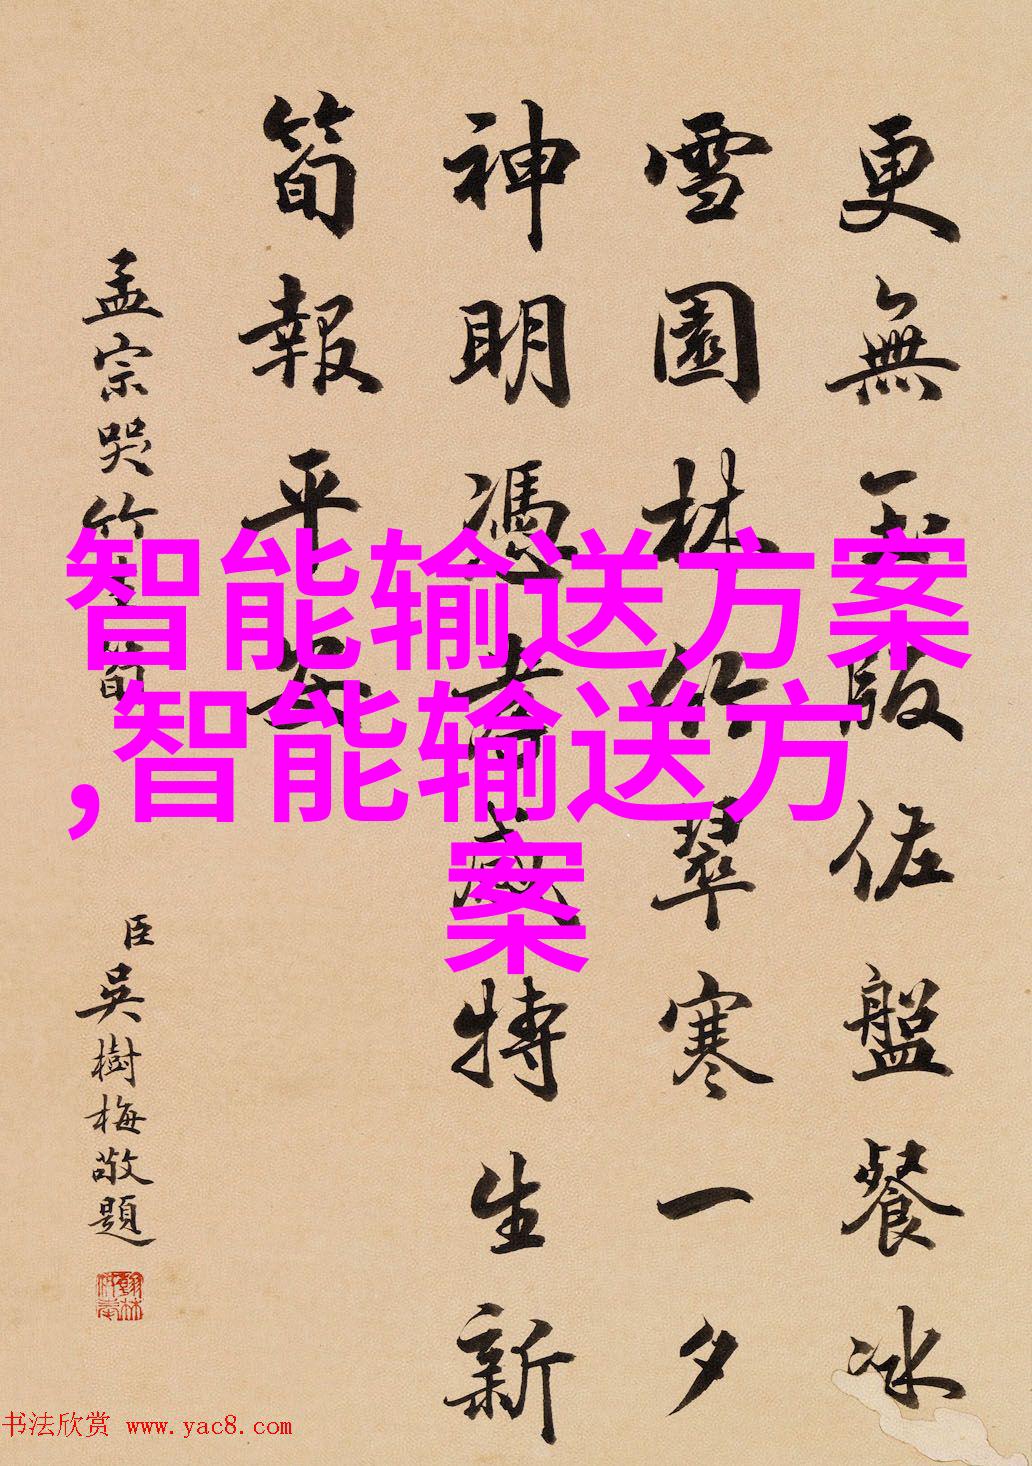 更無玉版佐盤餐冰
雪園林竹翠寒一夕
神明憑孝感特生新
筍報平安
孟宗哭竹筍
臣吳樹梅敬題
智能输送方案
,智能输送方
案
书法欣赏 www.yac8.com